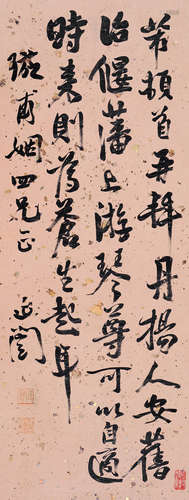 芾頓首再拜丹揚人安舊
治偃藩上游琴尊可以自適
時来則為蒼生起耳
甫姻四兄正
延闓